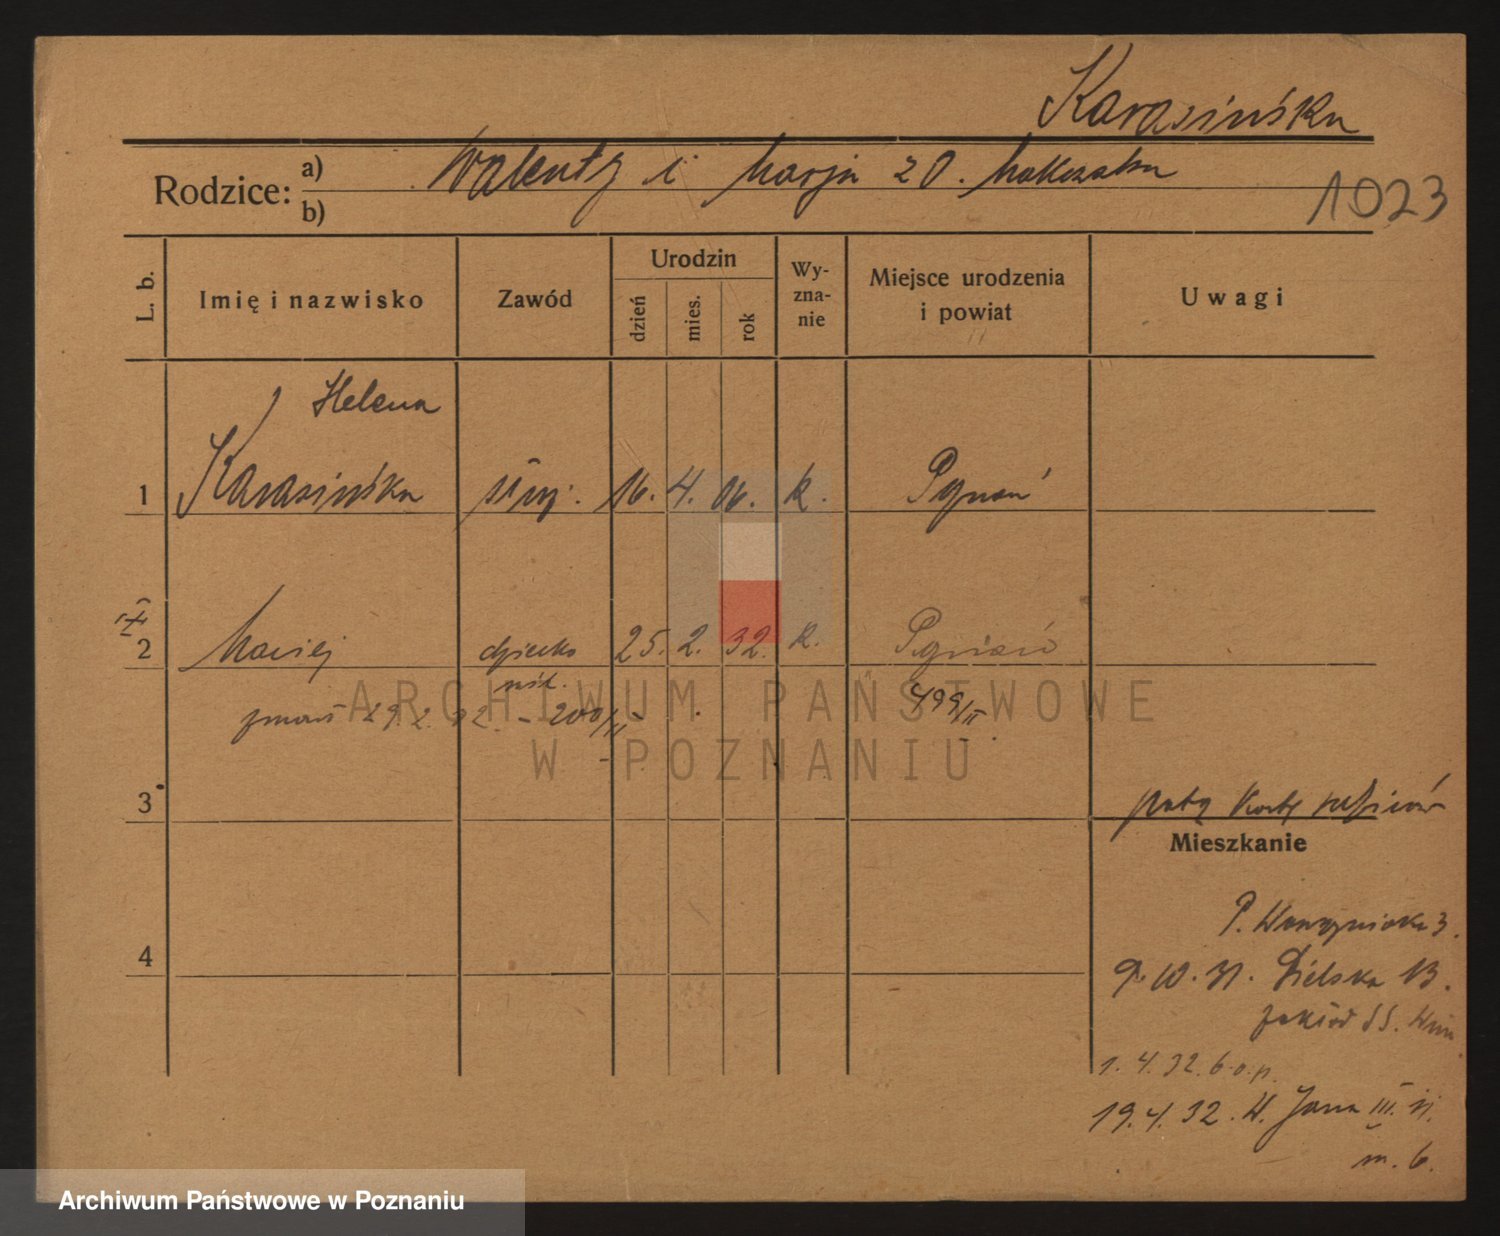 Karasińska
Rodzice: a) Walenty i Marja zd. Matczak
b)
1023
L. b.
Imię i nazwisko
Zawód
Urodzin
dzień
mies.
rok
Wy-
zna-
nie
Miejsce urodzenia
i powiat
Uwagi
Helena
1 Karasińska służ. 16. 4. 06. k. Poznań
2 Maciej dziecko 25. 2. 32. k. Poznań
nśl. 499/II
zmarł 29. 2. 32. - 200/II
3
Mieszkanie
4
P. 3.
9. 10. 31. Bielska 13.
zakład SS.
1. 4. 32. b.o.p.
19. 4. 32. W. Jana III
m. 6.
ARCHIWUM PAŃSTWOWE
W POZNANIU
Archiwum Państwowe w Poznaniu